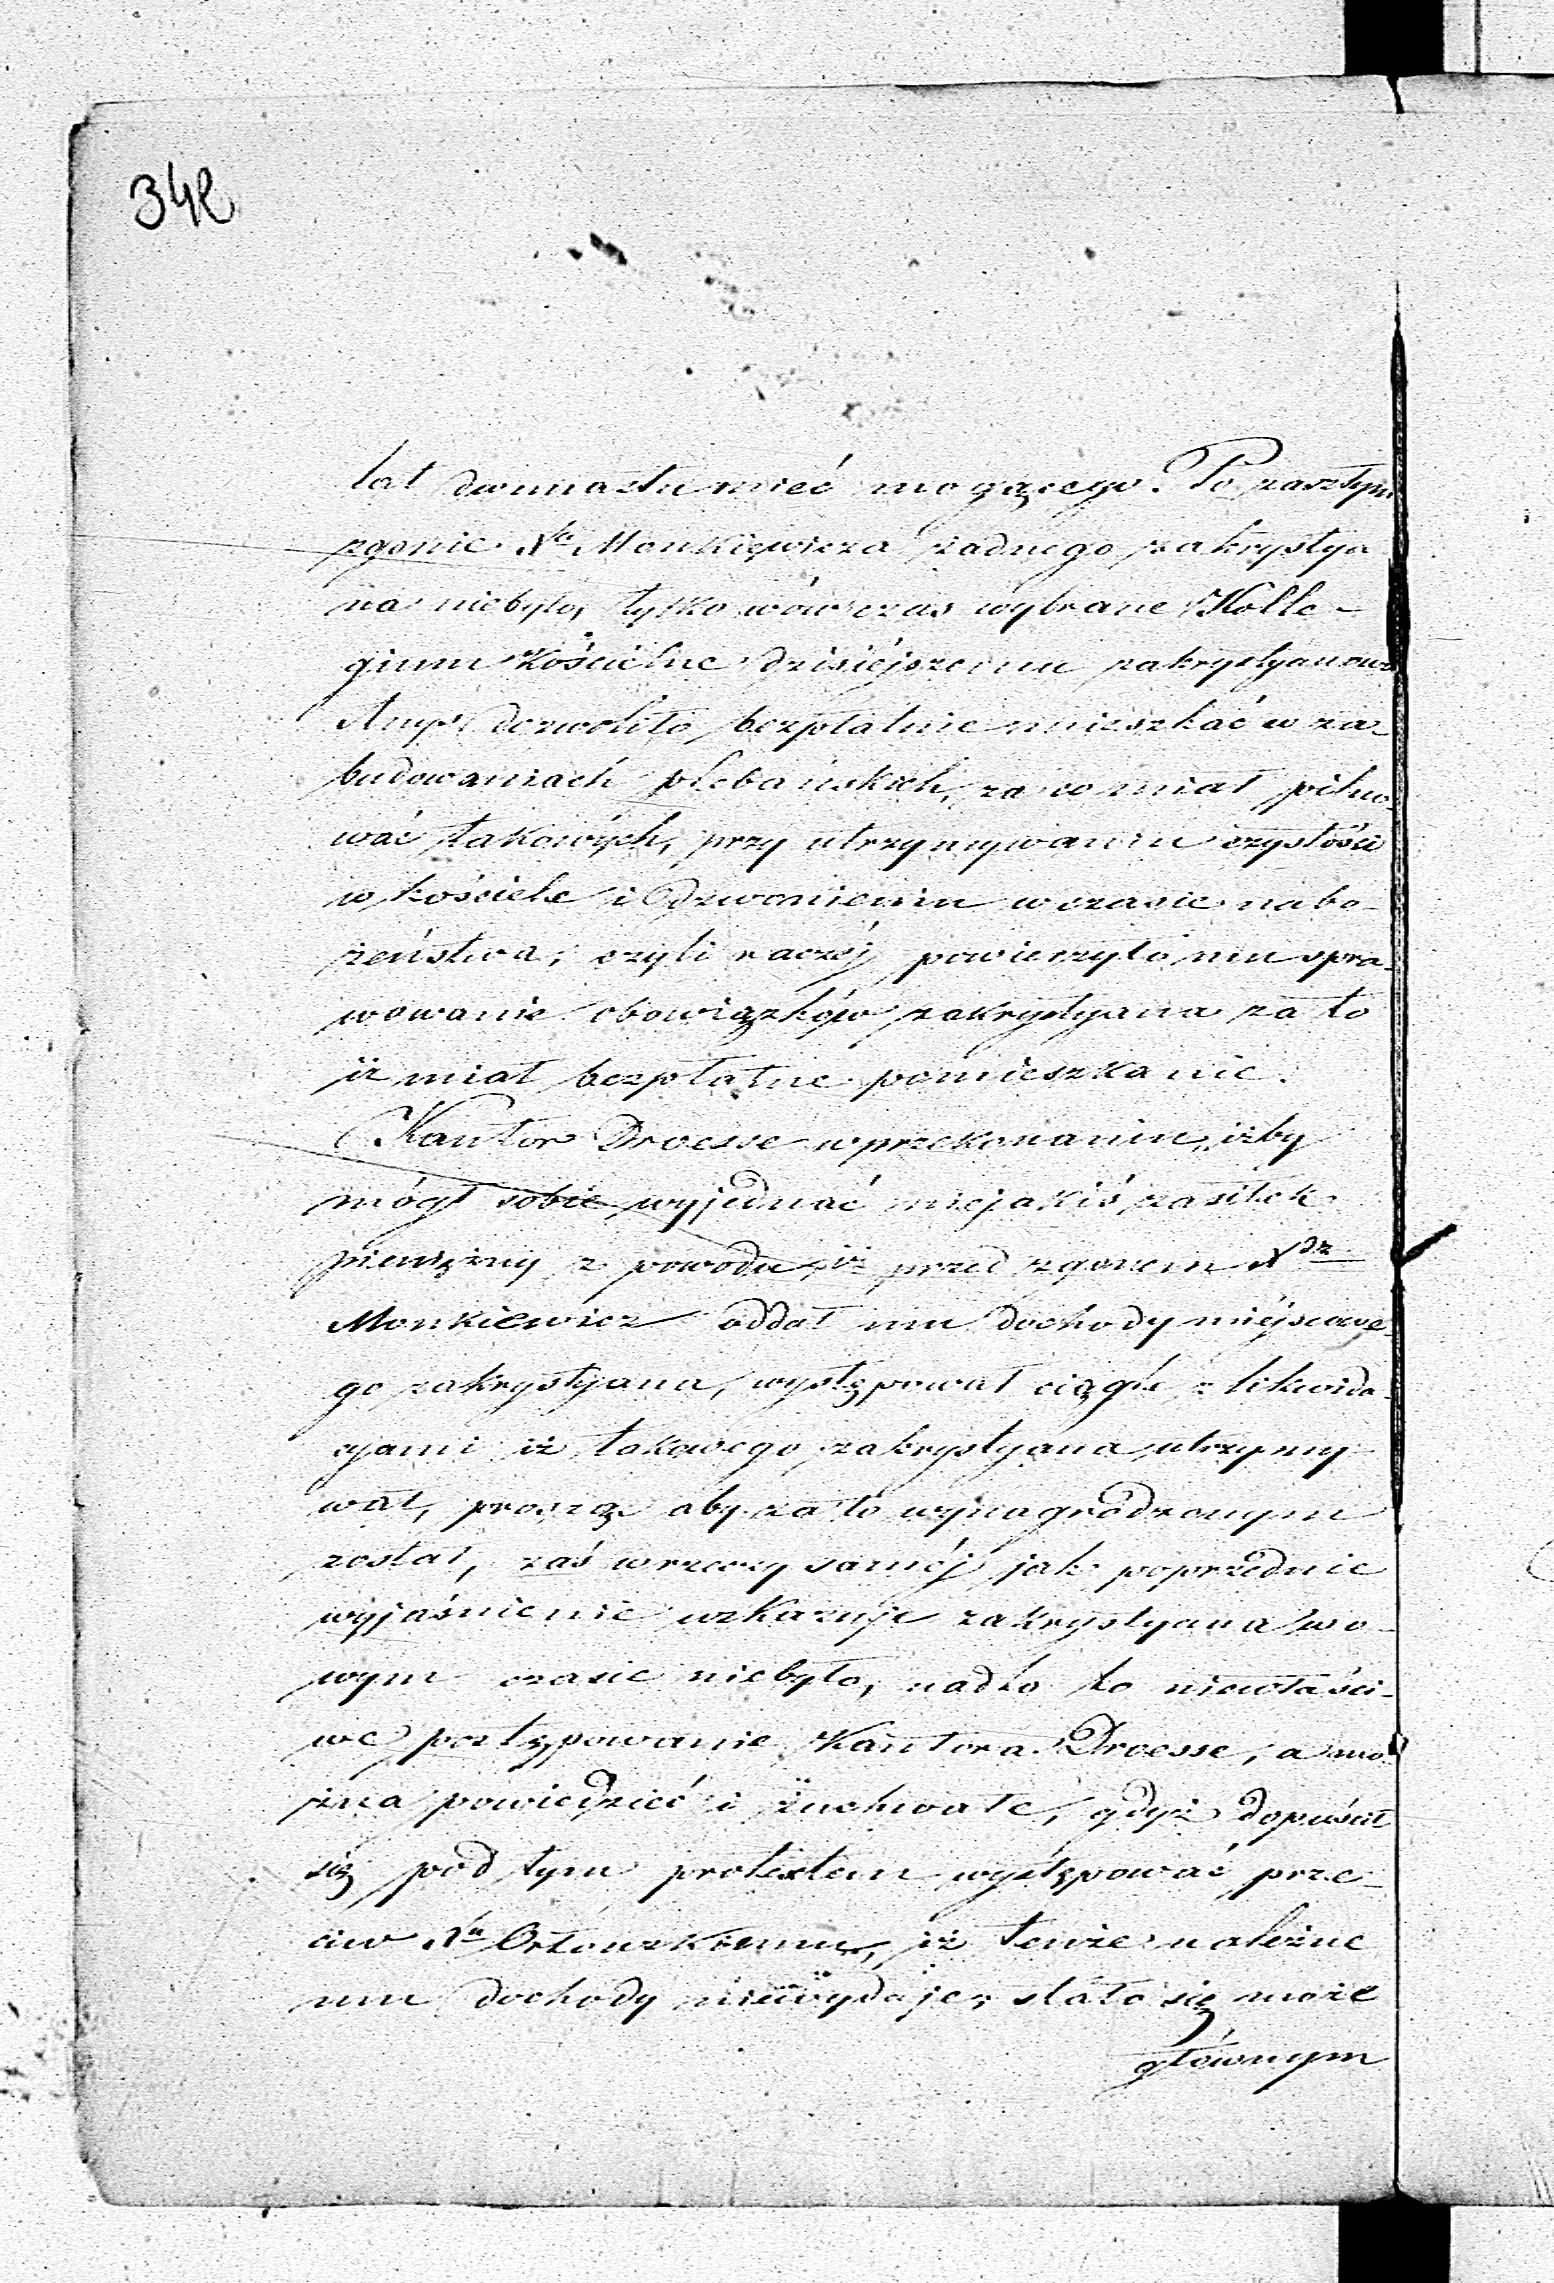 342
lat dwunastu mieć mogącego. Po zaszłym
zgonie Xa Monkiewicza żadnego zakrystya
na niebyło, tylko wówczas wybrane Kolle-
gium Kościelne dzisiéjszemu zakrystyanowi
dozwoliło bezpłatnie mieszkać w za-
budowaniach plebańskich, za co miał pilno-
wać takowych, przy utrzymywaniu czystości
w kościele i dzwonieniu w czasie nabo-
żeństwa, czyli raczéj powierzyło mu spra-
wowanie obowiązków zakrystyana za to
iż miał bezpłatne pomieszkanie.
Kantor Droesse w przekonaniu, iżby
mógł sobie wyjednać niejakiś zasiłek
pieniężny z powodu, iż przed zgonem Xdz
Monkiewicz oddał mu dochody miéjscowe-
go zakrystyana, występował ciągle z likwida-
cyami iż takowego zakrystyana utrzymy-
wał, prosząc aby za to wynagrodzonym
został, zaś w rzeczy saméj jak poprzednie
wyjaśnienie wskazuje zakrystyana w o-
wym czasie niebyło, nadto to niewłaści-
we postępowanie Kantora Droesse, a mo-
żna powiedzieć i zuchwałe, gdyż dopuścił
się pod tym pretextem występować prze-
ciw Xu Orłowskiemu, iż tenże należne
mu dochody niewydaje, stało się może
głównym